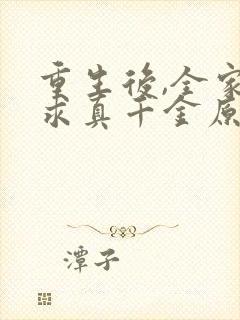 重生後,全家
求真千金原
潭子